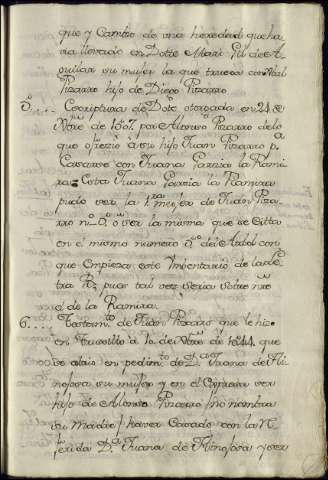 que y Cambio de una heredad que ha
via llevado en Dote Mari Gil de A
guilar su muger la que trueca con
Pizarro hijo de Diego Pizarro
5.... Escriptura de Dote otorgada en 24 de
de 1507. por Alonso Pizarro de lo
que ofrezio a su hijo Juan Pizarro pa
Casarse con Juana Garzia la Rami
ra Esta Juana Garzia la Ramira
pudo ser la 1.ra muger de Juan Piza
rro nº 5º o ser la misma que se Citta
en el mismo numero 5º del Arbol con
que Empieza este Imbentario de la
tra pues tal vez seria
el de la Ramira.
6.... Testamto de Juan Pizarro que le hizo
en Truxillo a 10 de de 1544 que
esta en pedimto de Da Juana de Hi
nojosa su muger y en el Espresa ser
hijo de Alonso Pizarro /no nombra
su Madre/ haver Casado con la Re
ferida Da Juana de Hinojosa y ser